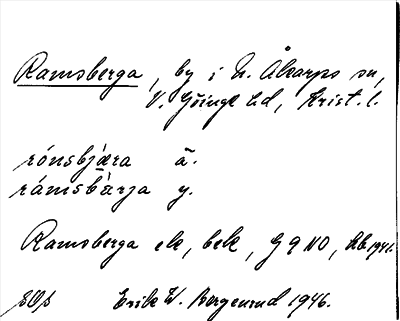 Ramsberga, by i N. Åkarps sn,
V. Göinge hd, Krist. l.
rónsbjæra ä.
rámsbàrja y.
Ramsberga ek, bek, G 9 NO, Kb. 1946.
Erik W. Bergenrud 1946.